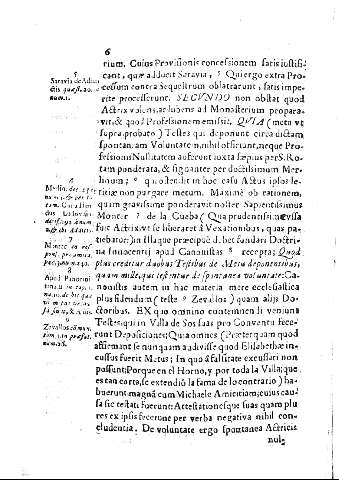 6
rium. Cuius Provisionis concessionem satis iustifi-
cant, quæ adducit Saravia, 5 Qui ergo extra Pro-
cessum contra Sequestrum oblatrarunt, satis impe-
rite processerunt. SECVNDO non obstat quod
Actrix volens, ac lubens ad Monasterium propera-
vit, & quod Professionem emisit, QVIA (metu vt
supra probato) Testes qui deponunt circa dictam
spontaneam Voluntatem nihil officiunt, neque Pro-
fessionis Nullitatem auferent iuxta sæpius per S. Ro-
tam ponderata, & signanter per doctissimum Mer-
linum; 6 qui ostendit in hoc casu Actus ipsos le-
titiæ non purgare metum. Maxime ob rationem,
quam gravissime ponderavit noster Sapientissimus
Montèr 7 de la Gueba (Qua prudentissime vissa
fuit Actrix vt se liberaret à Vexationibus, quas pa-
tiebatur:) in illa quæ præcipuè debet fundari Doctri-
na Innocentij apud Canonistas 8 recepta; Quod
plus credatur duobus Testibus de Metu deponentibus,
quam mille, qui testentur de spontanea voluntate: Ca-
nonistis autem in hac materia mere ecclesiastica
plus fidendum (teste 9 Zevallos) quam alijs Do-
ctoribus. EX quo omnino contemnen li veniunt
Testes, qui in Villa de Sos suas pro Conventu fece-
runt Deposiciones; Quia omnes (Præterquam quod
affirmant se nunquam audivisse quod Elisabethæ in-
cussus fuerit Metus; In quo à falsitate excussari non
possunt; Porque en el Horno, y por toda la Villa; que
es tan corta, se extendiò la fama de lo contrario) ha-
buerunt magnã cum Michaele Amicitiam, cuius cau-
sa sic testati fuerunt: Attestationesque suas quam plu-
res ex ipsis fecerunt per verba negativa nihil con-
cludentia. De voluntate ergo spontanea Actricis
nul-
5
Saravia de Adiun
ctis quæst. 10.
num. 1.
6
Merlin. dec.
7
8
Apud
9
Zevallos